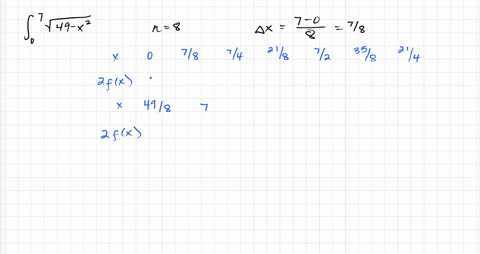 ∫₀⁷ √(49-x²) n=8 Δx = (7-0)/8 = 7/8
x 0 7/8 7/4 21/8 7/2 35/8 21/4
2f(x)
x 49/8 7
2f(x)